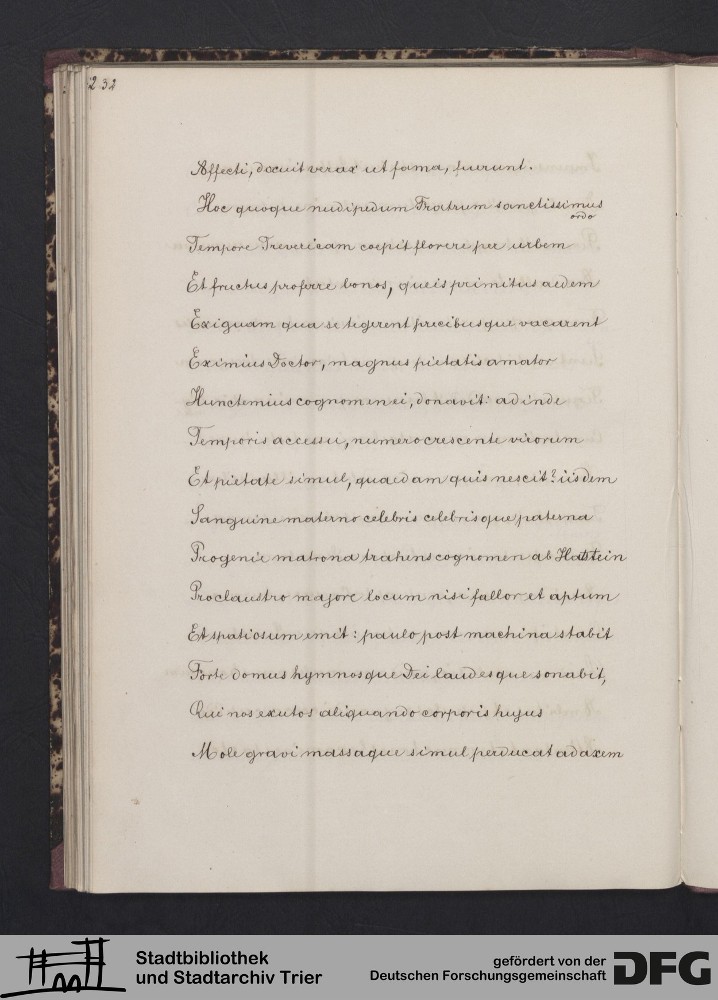 232
Affecti, docuit verax ut fama, fuerunt.
Hoc quoque nudipedum Fratrum sanctissimus
ordo
Tempore Trevericam coepit florere per urbem
Et fructus proferre bonos, queis primitus aedem
Exiguam qua se tegerent precibusque vacarent
Eximius Doctor, magnus pietatis amator
Hunctemius cognomen ei, donavit: ad inde
Temporis accessu, numero crescente virorum
Et pietate simul, quaedam quis nescit? iisdem
Sanguine materno celebris celebrisque paterna
Progenie matrona trahens cognomen ab Hattstein
Pro claustro majore locum nisi fallor et aptum
Et spatiosum emit: paulo post machina stabit
Forte domus hymnosque Dei laudesque sonabit,
Qui nos exutos aliquando corporis hujus
Mole gravi massaque simul perducat ad axem
Stadtbibliothek
und Stadtarchiv Trier
gefördert von der
Deutschen Forschungsgemeinschaft
DFG